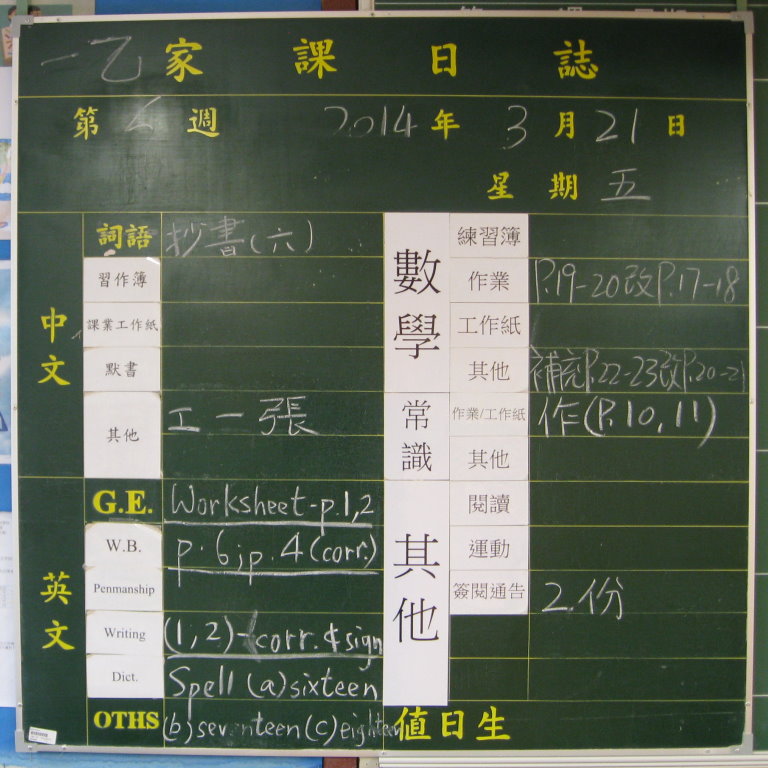 一乙家課日誌
第 週 2014年3月21日
星期五
中文
詞語 抄書(六)
習作簿
課業工作紙
默書
其他 工一張
英文
G.E. Worksheet-p.1,2
W.B. p.6;p.4(corr.)
Penmanship
Writing (1,2)-corr.&sign
Dict. Spell (a)sixteen
OTHS (b)seventeen(c)eighteen
數學
練習簿
作業 P.19-20改P.17-18
工作紙
其他 補充P.22-23改P.20-21
常識
作業/工作紙 作(P.10,11)
其他
其他
閱讀
運動
簽閱通告 2份
值日生